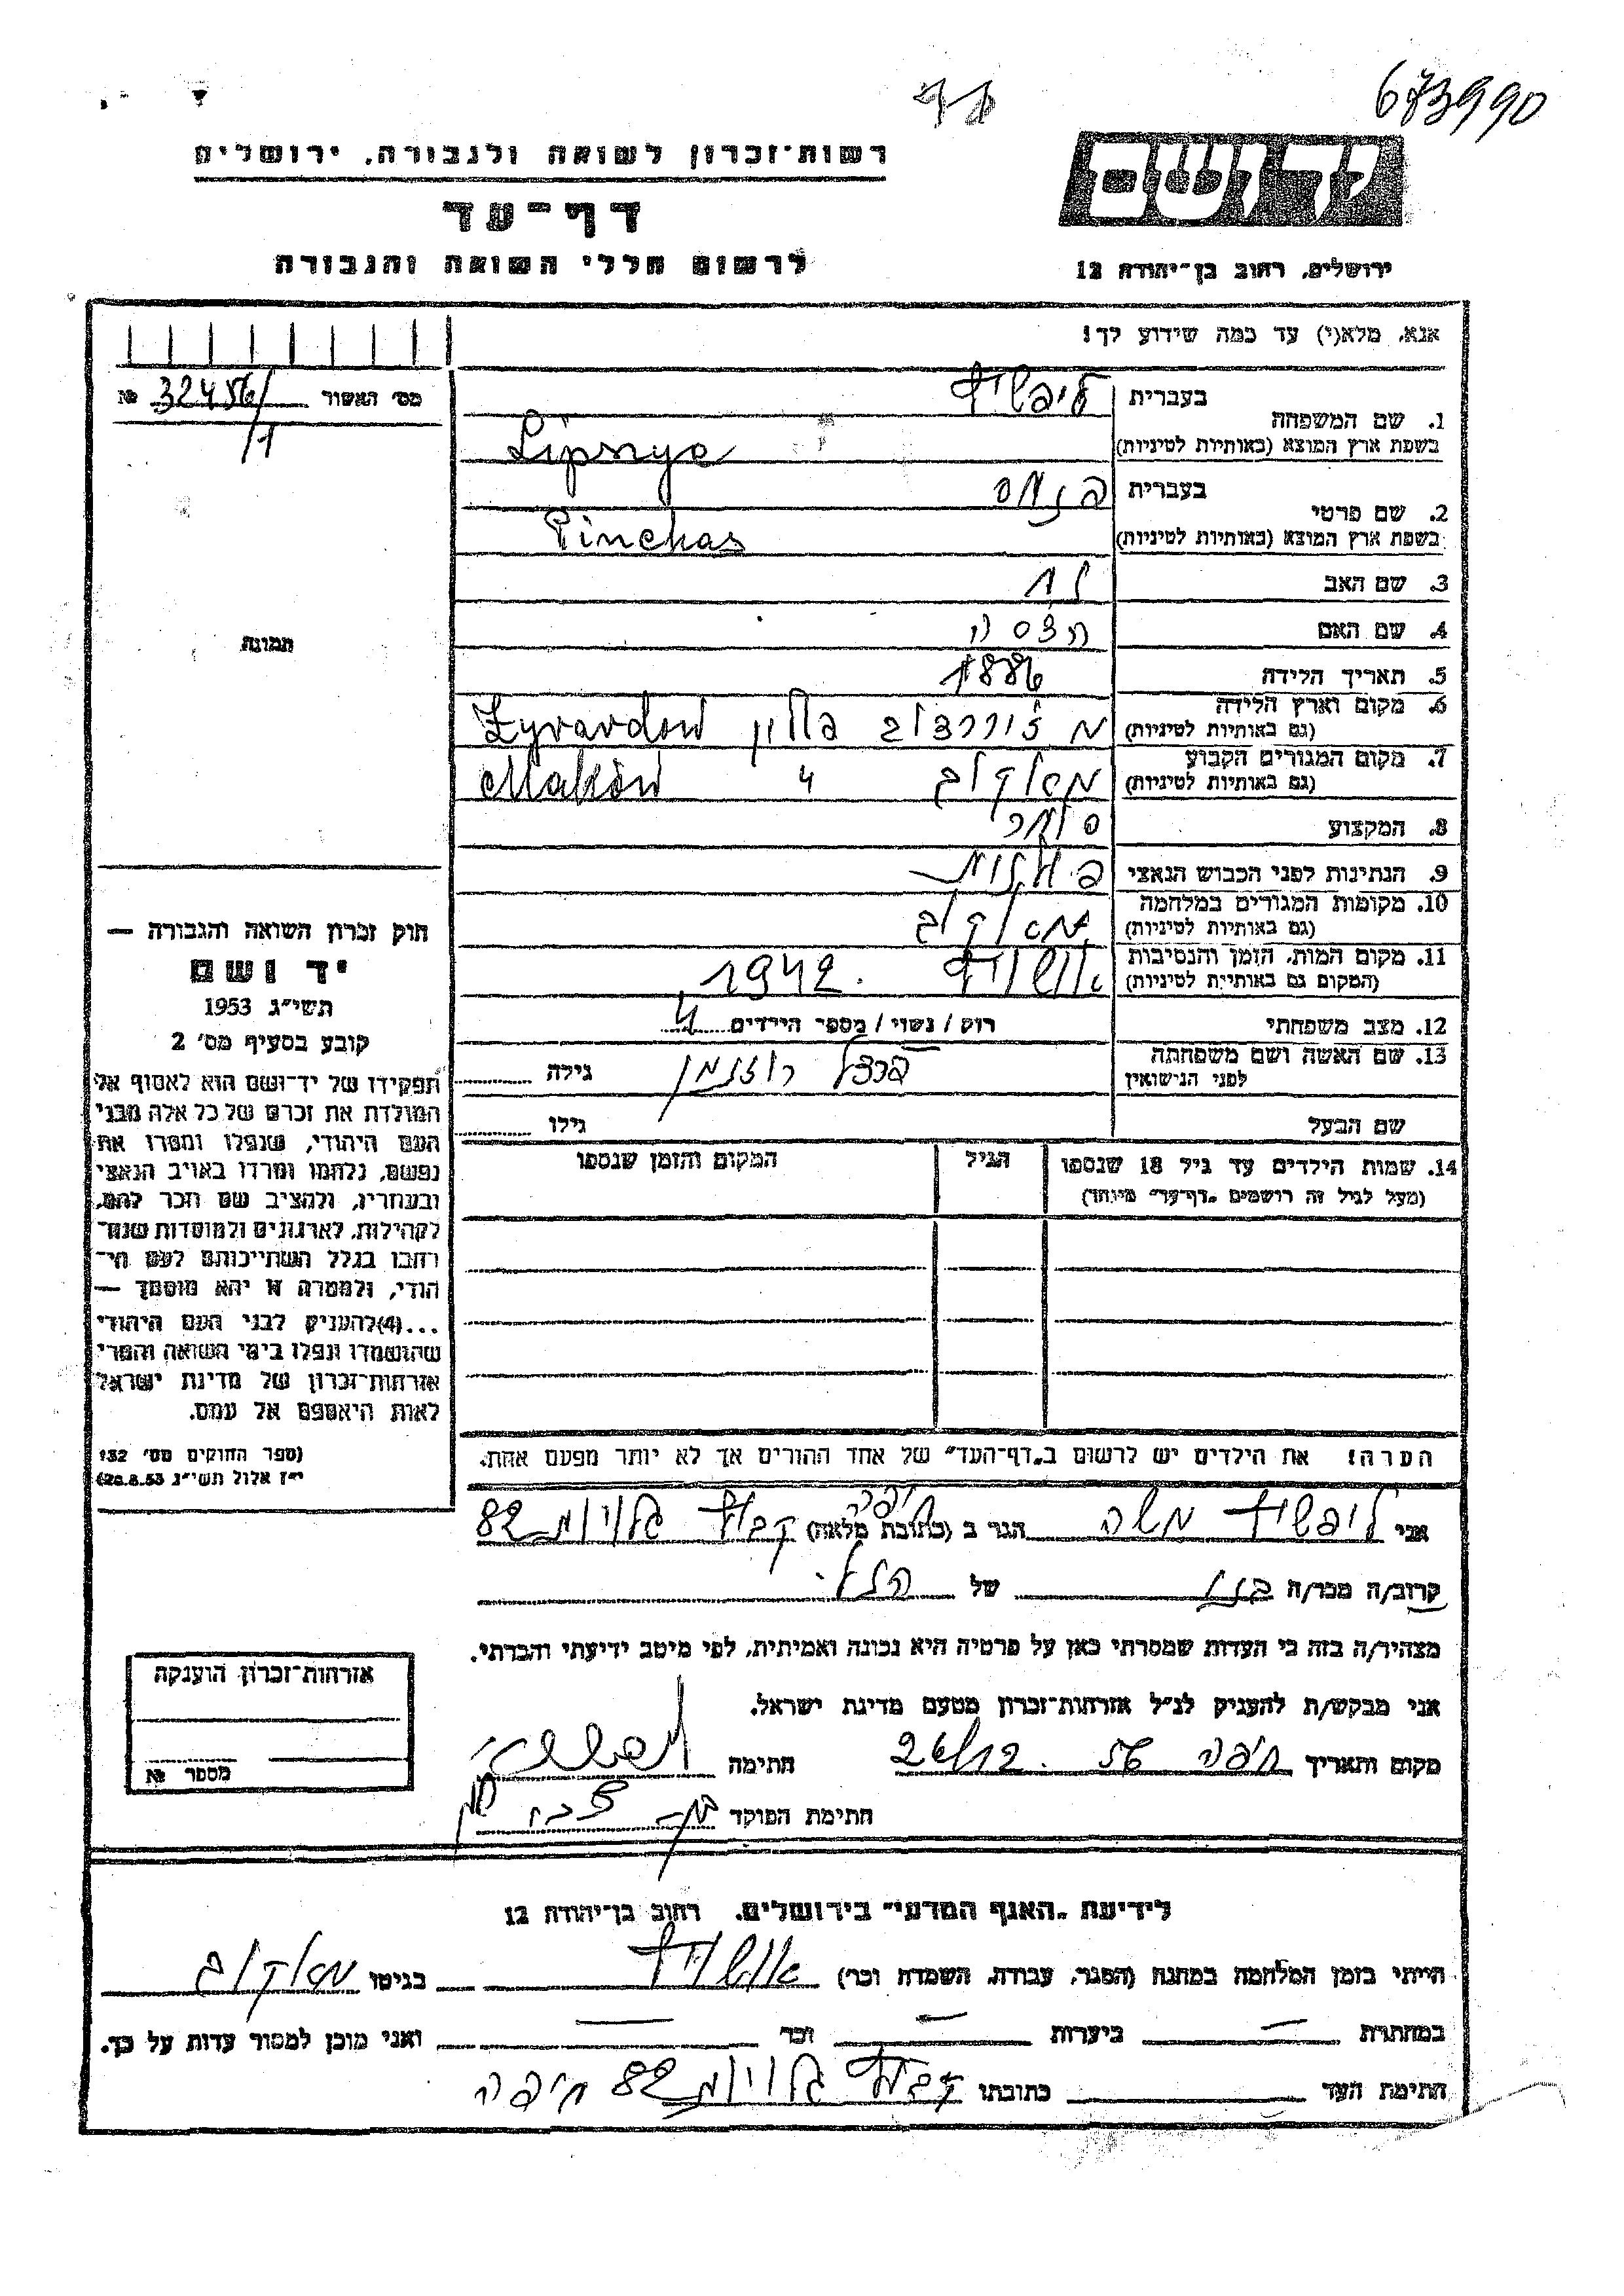 673990
רשות־זכרון לשואה ולגבורה, ירושלים
יד ושם
דף־עד
לרשום חללי השואה והגבורה
ירושלים, רחוב בן־יהודה 12
אנא, מלא(י) עד כמה שידוע לך!
מס׳ האשור 32456/ №
/1
1. שם המשפחה
בעברית ליפשיץ
בשפת ארץ המוצא (באותיות לטיניות) Lipszyc
2. שם פרטי
בעברית פנחס
בשפת ארץ המוצא (באותיות לטיניות) Pinchas
3. שם האב
4. שם האם הדסה
5. תאריך הלידה 1886
6. מקום וארץ הלידה (גם באותיות לטיניות) פולין Zyrardów
7. מקום המגורים הקבוע (גם באותיות לטיניות) מאקוב " Maków
8. המקצוע סוחר
9. הנתינות לפני הכבוש הנאצי פולנית
10. מקומות המגורים במלחמה (גם באותיות לטיניות) מאקוב
11. מקום המות, הזמן והנסיבות (המקום גם באותיות לטיניות) אושוויץ 1942.
12. מצב משפחתי רווק / נשוי / מספר הילדים 4
13. שם האשה ושם משפחתה לפני הנישואין גילה
שם הבעל גילו
14. שמות הילדים עד גיל 18 שנספו (מעל לגיל זה רושמים „דף־עד״ מיוחד)
הגיל
המקום והזמן שנספו
הערה! את הילדים יש לרשום ב„דף־העד״ של אחד ההורים אך לא יותר מפעם אחת.
תמונה
חוק זכרון השואה והגבורה —
יד ושם
תשי״ג 1953
קובע בסעיף מס׳ 2
תפקידו של יד־ושם הוא לאסוף אל
המולדת את זכרם של כל אלה מבני
העם היהודי, שנפלו ומסרו את
נפשם, נלחמו ומרדו באויב הנאצי
ובעוזריו, ולהציב שם וזכר להם,
לקהילות, לארגונים ולמוסדות שנח־
רבו בגלל השתייכותם לעם הי־
הודי, ולמטרה זו יהא מוסמך —
...(4) להעניק לבני העם היהודי
שהושמדו ונפלו בימי השואה והמרי
אזרחות־זכרון של מדינת ישראל
לאות היאספם אל עמם.
(ספר החוקים מס׳ 132
י״ז אלול תשי״ג 28.8.53)
אני ליפשיץ משה הגר ב (כתובת מלאה) חיפה קבוץ גלויות 82
קרוב/ה מכר/ה בנו של הנ״ל
מצהיר/ה בזה כי העדות שמסרתי כאן על פרטיה היא נכונה ואמיתית, לפי מיטב ידיעתי והכרתי.
אני מבקש/ת להעניק לנ״ל אזרחות־זכרון מטעם מדינת ישראל.
מקום ותאריך חיפה 26/12. 56 חתימה
חתימת הפוקד
אזרחות־זכרון הוענקה
מספר №
לידיעת „האגף המדעי״ בירושלים, רחוב בן־יהודה 12
הייתי בזמן המלחמה במחנה (הסגר, עבודה, השמדה וכו׳) אושוויץ בגיטו מאקוב
במחתרת — ביערות — וכו׳ — ואני מוכן למסור עדות על כך.
חתימת העד כתובתו קבוץ גלויות 82 חיפה